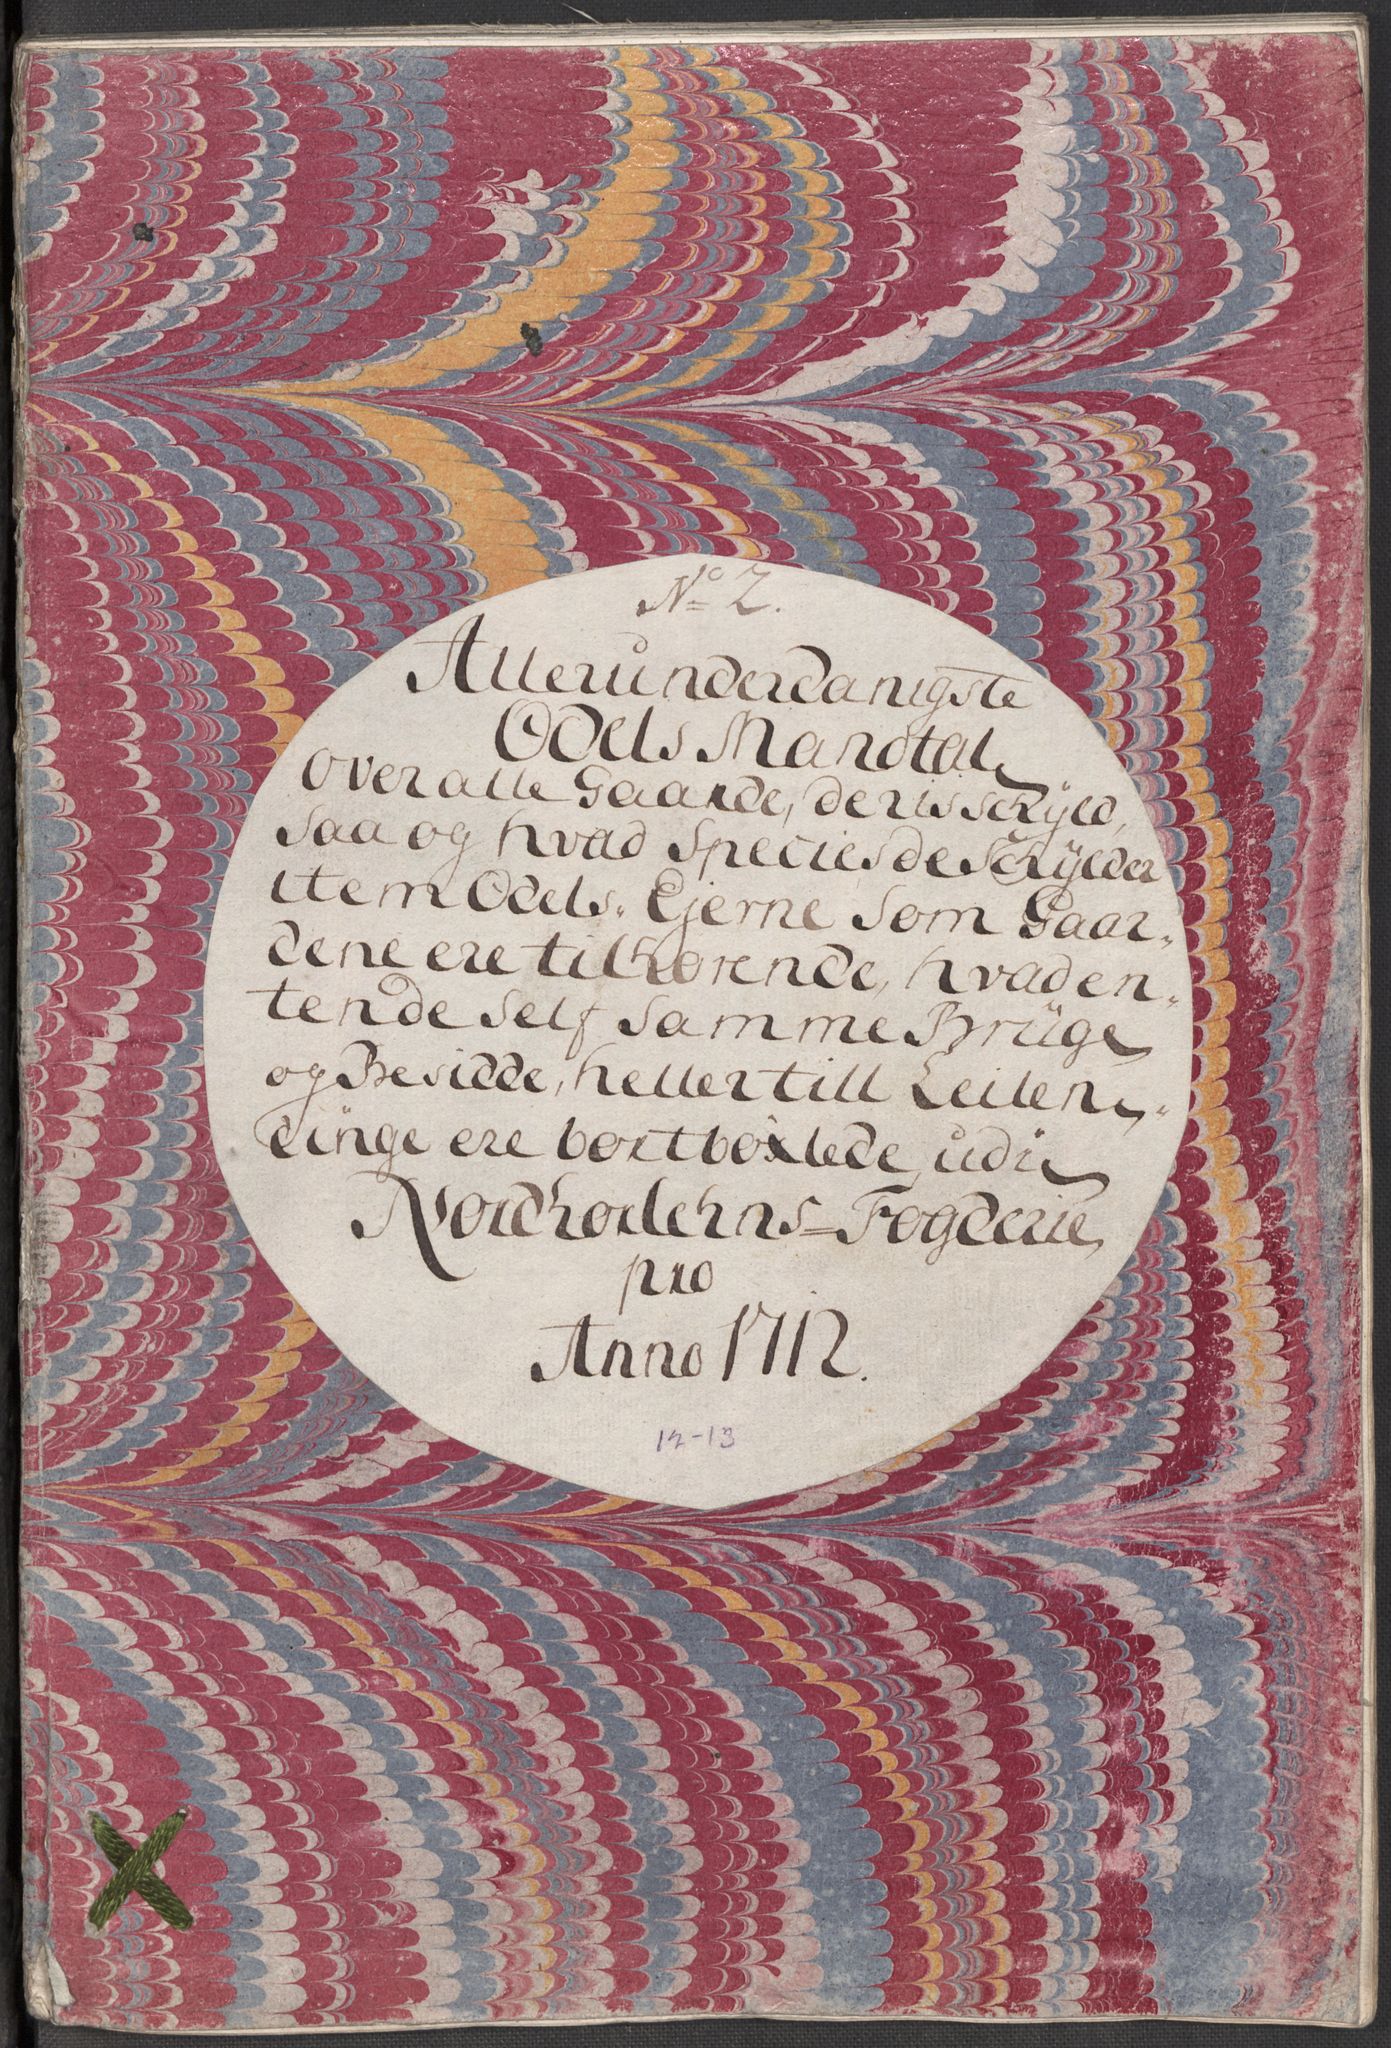 No 2.
Allerunderdanigste
Odels Mandtal
over alle Gaarde, deris schyld,
saa og hvad Species de Schylder
item Odels-Ejerne som Gaar-
dene ere tilhørende, hvad en-
ten de self samme Brüge
og Besidde, heller till Leilen-
dinge ere bortbøxlede, udi
Nordhorlehns-Fogderie
pro
Anno 1712.
12-13